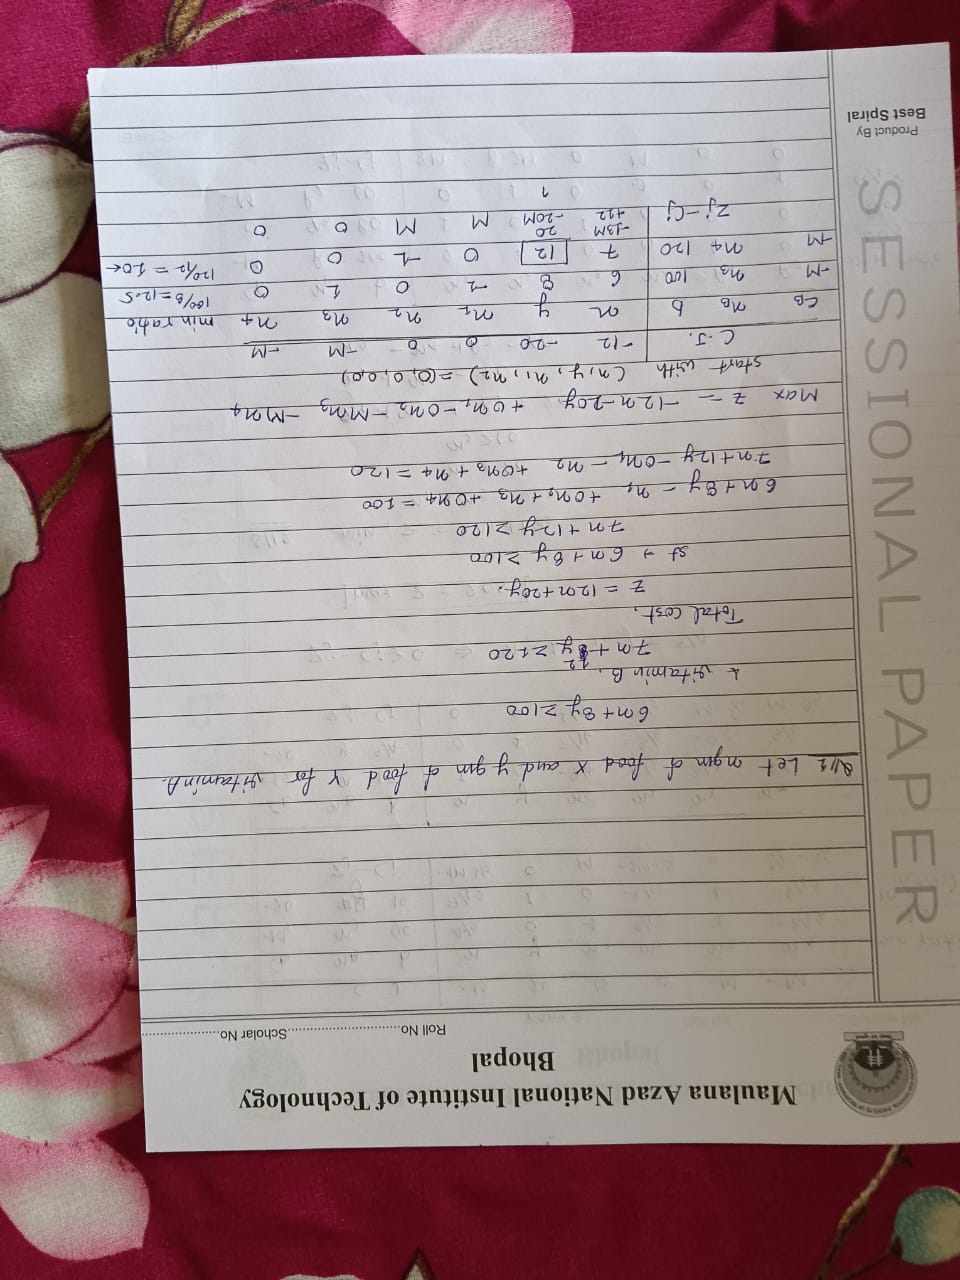 Maulana Azad National Institute of Technology
Bhopal
Roll No..............................Scholar No.....................
SESSIONAL PAPER
Q11 Let x gm of food X and y gm of food Y for vitamin A.
6x + 8y ≥ 100
& vitamin B.
7x + 12y ≥ 120
Total cost,
z = 12x + 20y.
st → 6x + 8y ≥ 100
7x + 12y ≥ 120
6x + 8y - x₁ + 0x₂ + x₃ + 0x₄ = 100
7x + 12y - 0x₁ - x₂ + 0x₃ + x₄ = 120
Max z = -12x - 20y + 0x₁ - 0x₂ - Mx₃ - Mx₄
start with (x, y, x₁, x₂) = (0, 0, 0, 0)
C.J. -12 -20 0 0 -M -M
CB xB b x y x₁ x₂ x₃ x₄ min ratio
-M x₃ 100 6 8 -1 0 1 0 100/8 = 12.5
-M x₄ 120 7 12 0 -1 0 0 120/12 = 10←
Zj - Cj -13M +12 20 -20M M M 0 0
Product By
Best Spiral